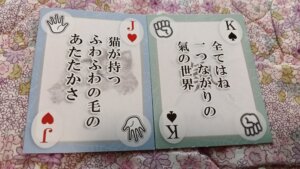 J
猫が持つ
ふわふわの毛の
あたたかさ
J
K
全てはね
一つながりの
氣の世界
K